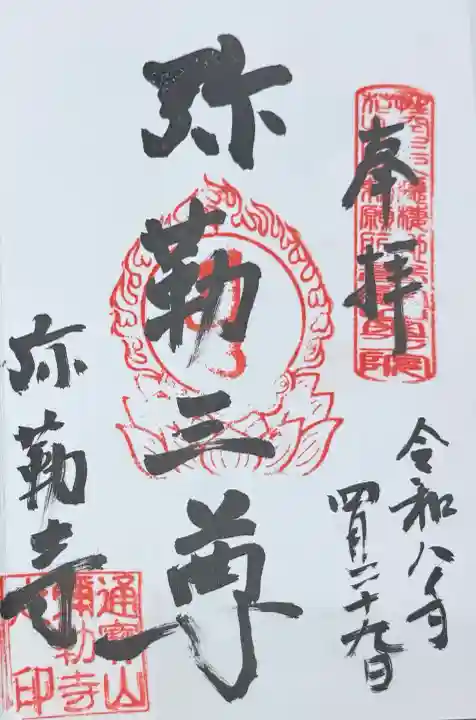 奉拝
令和八年
四月二十九日
弥勒三尊
弥勒寺
通寶山
彌勒寺
之印